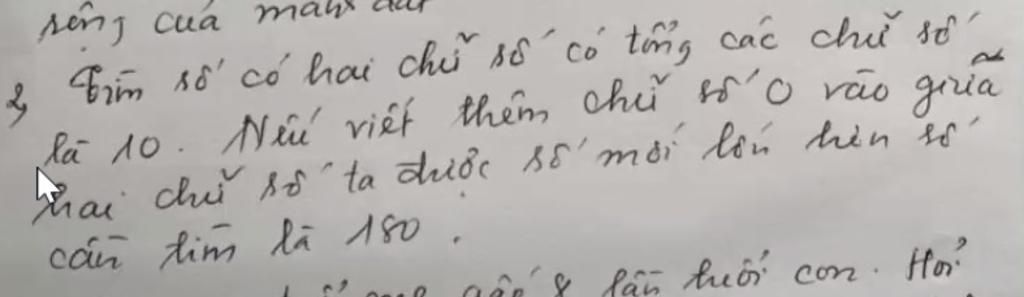 rộng của mảnh đất
2, Tìm số có hai chữ số có tổng các chữ số
là 10. Nếu viết thêm chữ số 0 vào giữa
hai chữ số ta được số mới lớn hơn số
cần tìm là 180.
gấp 8 lần tuổi con. Hỏi